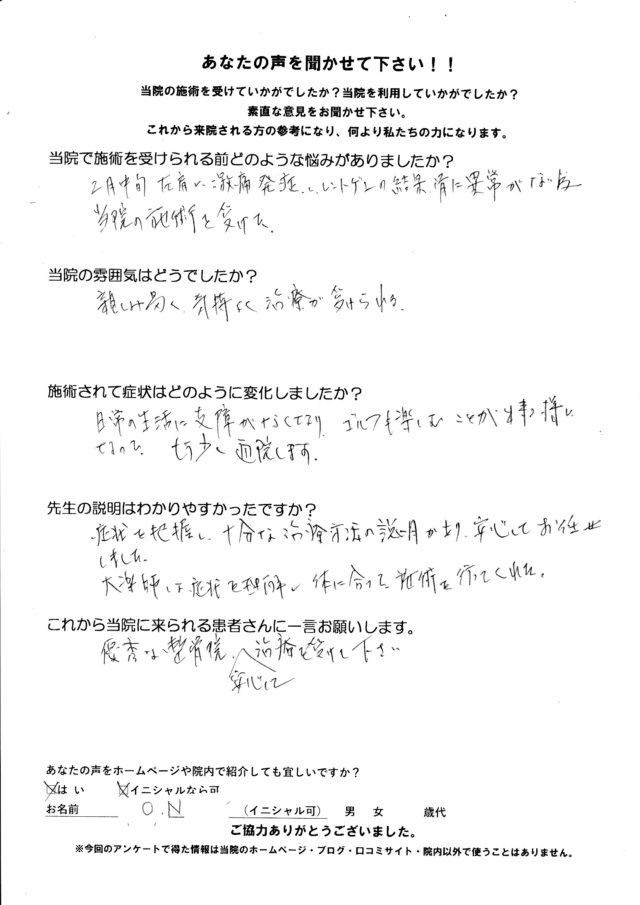 あなたの声を聞かせて下さい！！
当院の施術を受けていかがでしたか？当院を利用していかがでしたか？
素直な意見をお聞かせ下さい。
これから来院される方の参考になり、何より私たちの力になります。
当院で施術を受けられる前どのような悩みがありましたか？
2月中旬 左肩に激痛発症し、レントゲンの結果骨に異常がな
当院の施術を受けた。
当院の雰囲気はどうでしたか？
親しみ易く、気持よく治療が受けられる。
施術されて症状はどのように変化しましたか？
日常の生活に支障がなくなり、ゴルフも楽しむことが出来る様に
なったので、もう少し通院します。
先生の説明はわかりやすかったですか？
症状を把握し、十分な治療方法の説明があり、安心してお任せ
しました。
症状を理解し体に合った施術を行ってくれた。
これから当院に来られる患者さんに一言お願いします。
優秀な整骨院、安心して治療を受けて下さい
あなたの声をホームページや院内で紹介しても宜しいですか？
はい イニシャルなら可
お名前 O.N （イニシャル可） 男 女 歳代
ご協力ありがとうございました。
※今回のアンケートで得た情報は当院のホームページ・ブログ・口コミサイト・院内以外で使うことはありません。